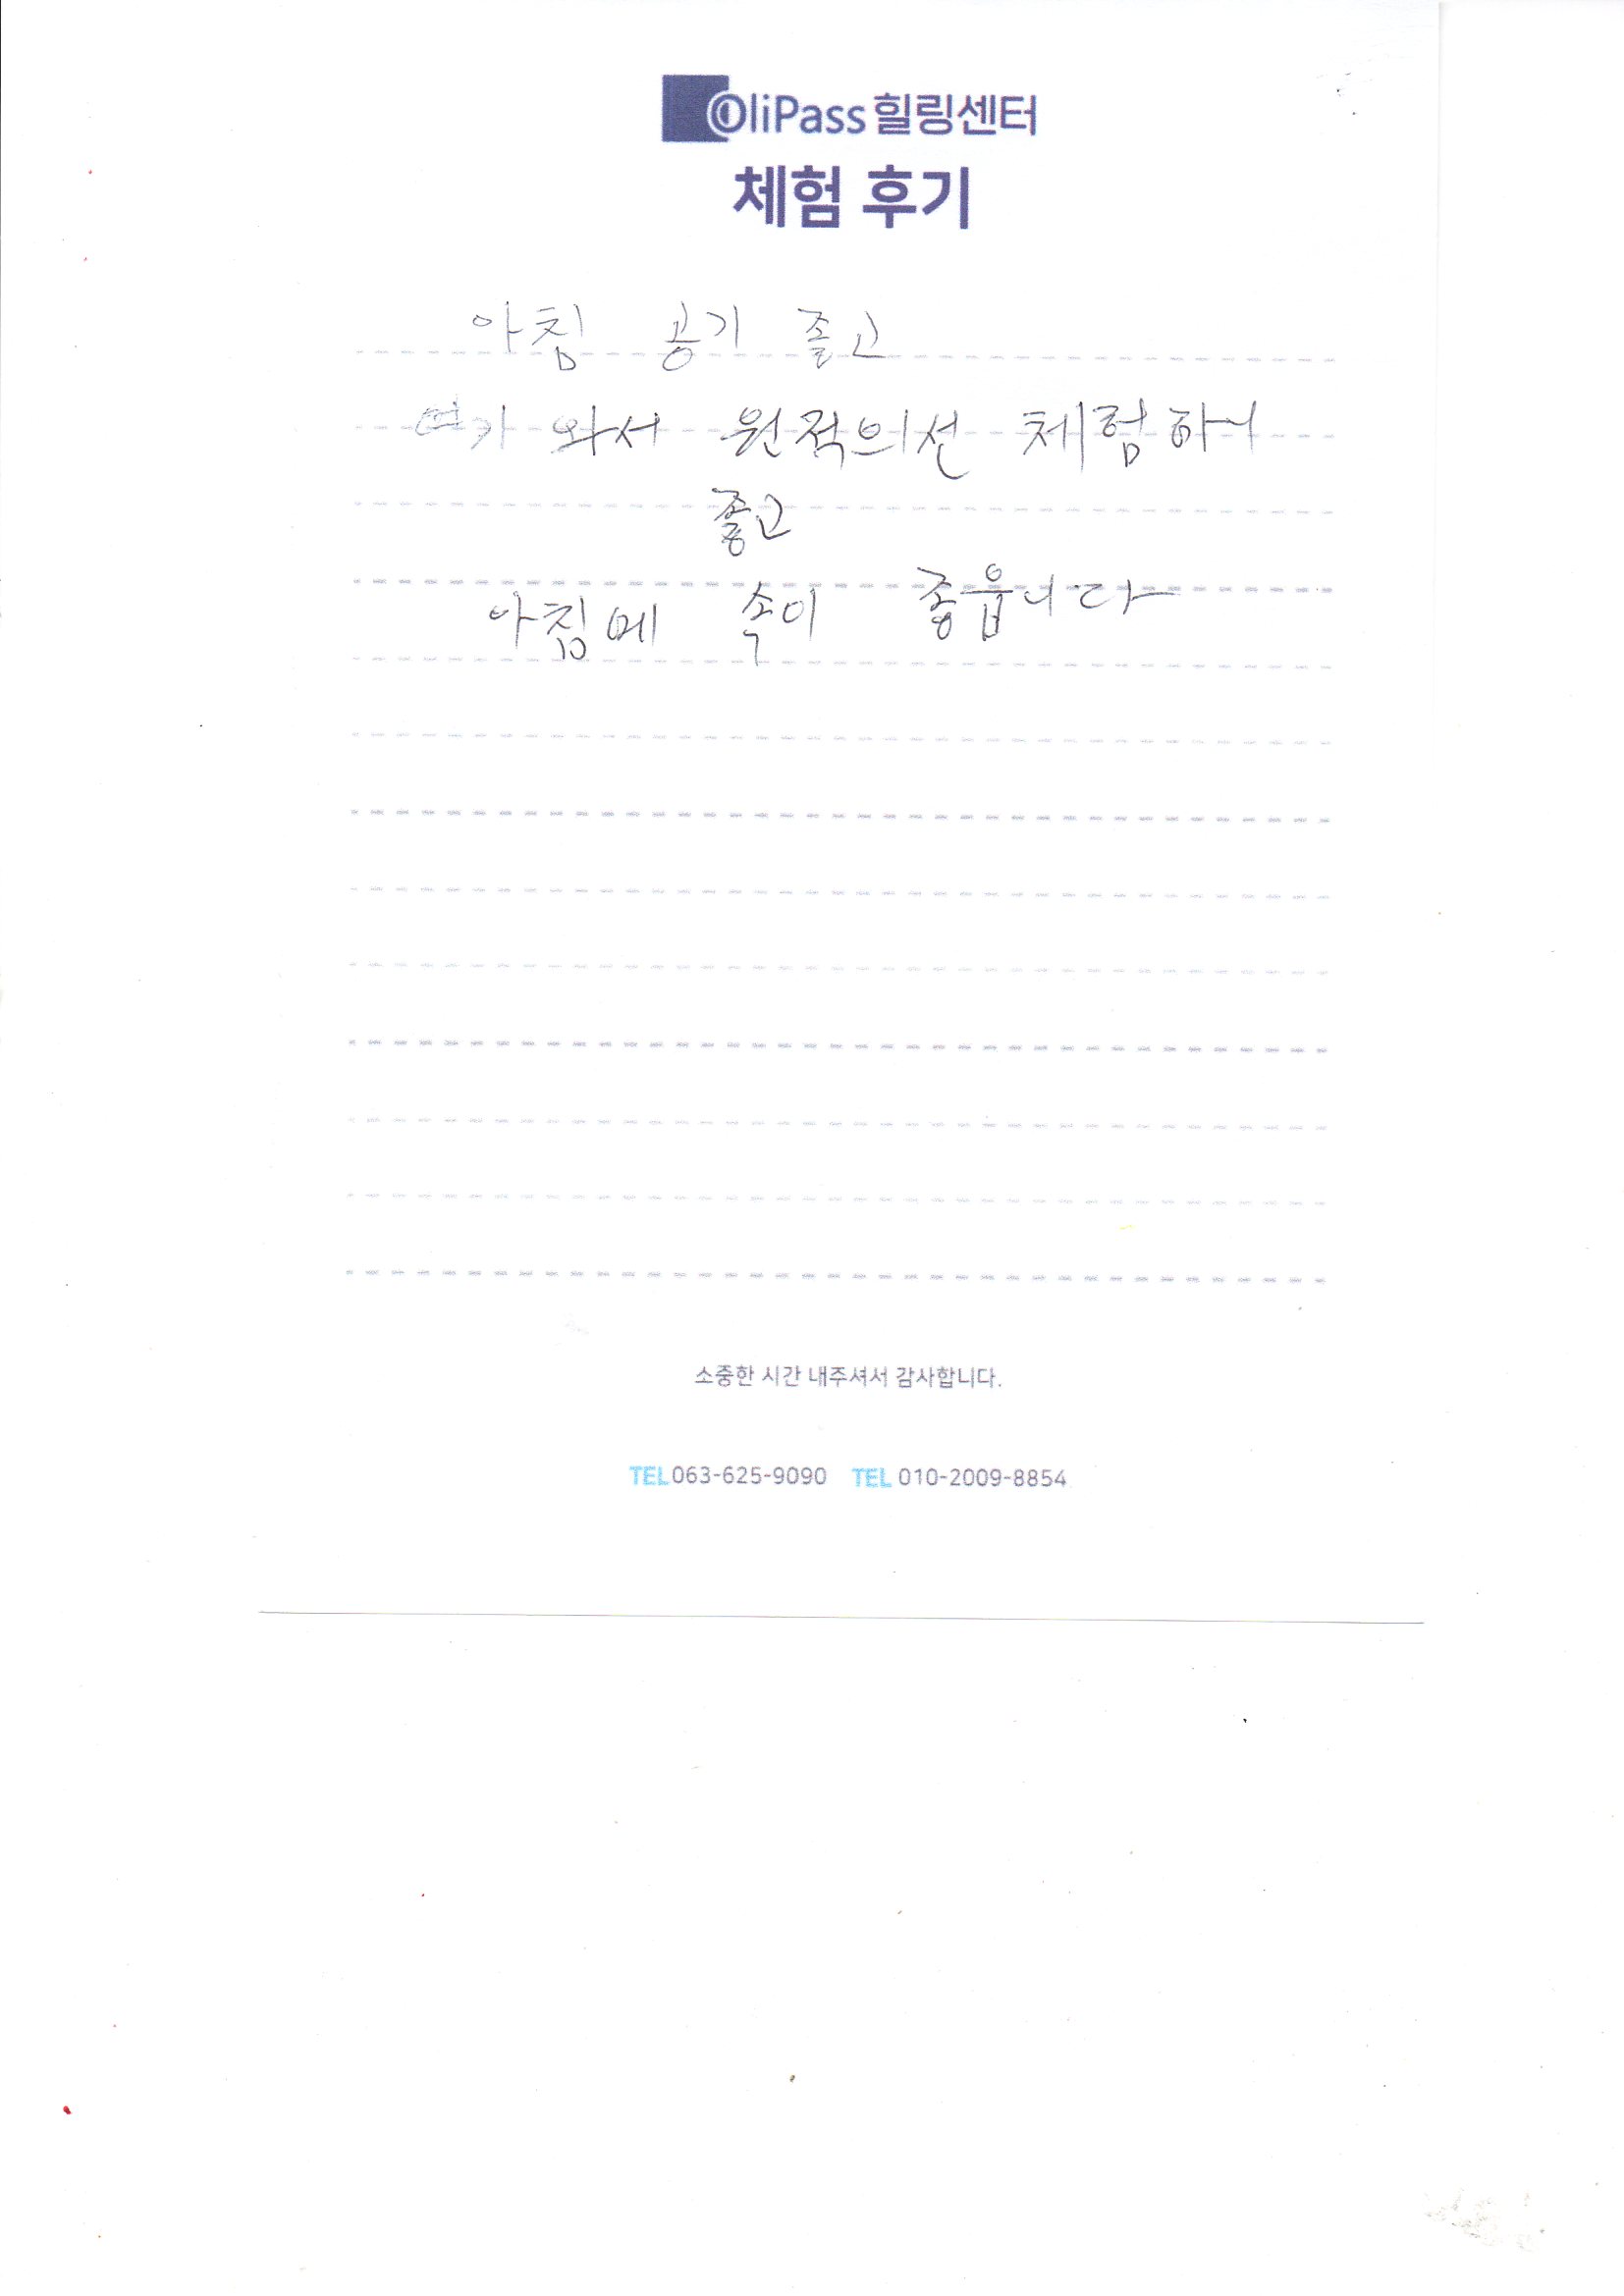 OliPass 힐링센터
체험 후기
아침 공기 좋고
여기 와서 원적의선 체험하니
좋고
아침에 속이 좋읍니다
소중한 시간 내주셔서 감사합니다.
TEL 063-625-9090 TEL 010-2009-8854